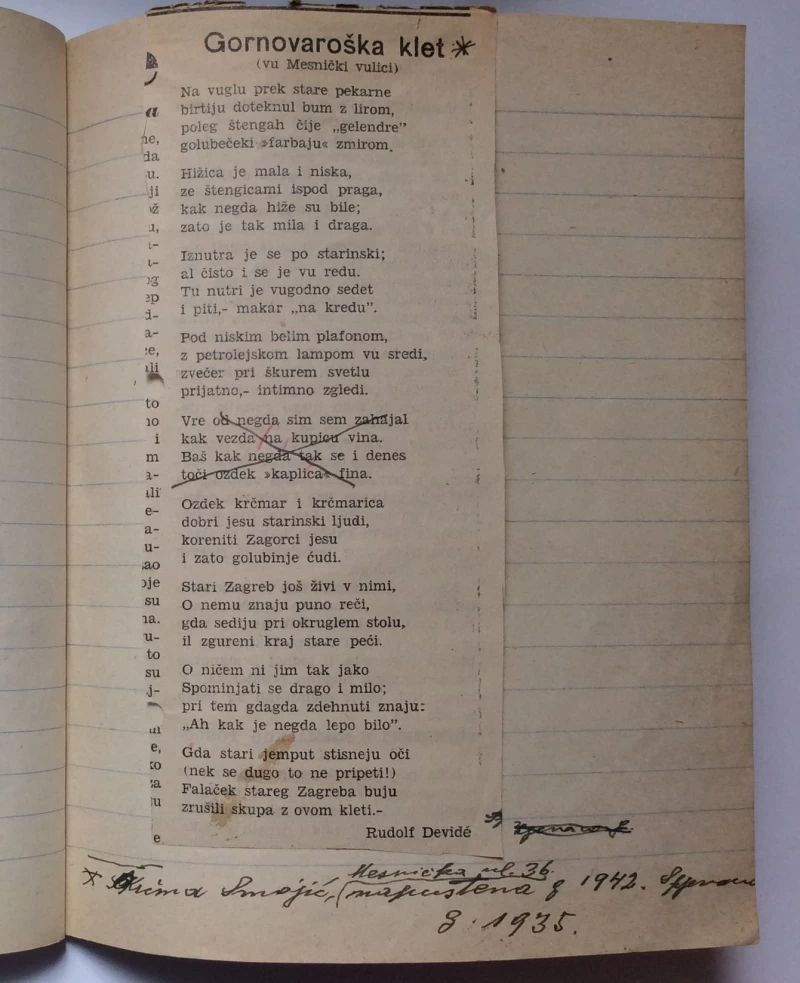 Gornovaroška klet *
(vu Mesnički vulici)
Na vuglu prek stare pekarne
birtiju doteknul bum z lirom,
poleg štengah čije „gelendre”
golubečeki »farbaju« zmirom.
Hižica je mala i niska,
ze štengicami ispod praga,
kak negda hiže su bile;
zato je tak mila i draga.
Iznutra je se po starinski;
al čisto i se je vu redu.
Tu nutri je vugodno sedet
i piti,- makar „na kredu”.
Pod niskim belim plafonom,
z petrolejskom lampom vu sredi,
zvečer pri škurem svetlu
prijatno,- intimno zgledi.
Vre od negda sim sem zahajal
kak vezda na kupicu vina.
Baš kak negda tak se i denes
toči ozdek »kaplica« fina.
Ozdek krčmar i krčmarica
dobri jesu starinski ljudi,
koreniti Zagorci jesu
i zato golubinje ćudi.
Stari Zagreb još živi v nimi,
O nemu znaju puno reči,
gda sediju pri okruglem stolu,
il zgureni kraj stare peći.
O ničem ni jim tak jako
Spominjati se drago i milo;
pri tem gdagda zdehnuti znaju:
„Ah kak je negda lepo bilo”.
Gda stari jemput stisneju oči
(nek se dugo to ne pripeti!)
Falaček stareg Zagreba buju
zrušili skupa z ovom kleti.-
Rudolf Devidé
ne,
da
u.
ji
ož
a,
i-
t-
og
ep
d-
a-
ce,
ili
to
no
i
m
a-
ili
e-
a-
u-
ao
oje
su
na.
u-
to
su
j-
e,
ko
za
u
e
Mesnička ul. 36
* Krčma Smojić, (napuštena g 1942.
g. 1935.